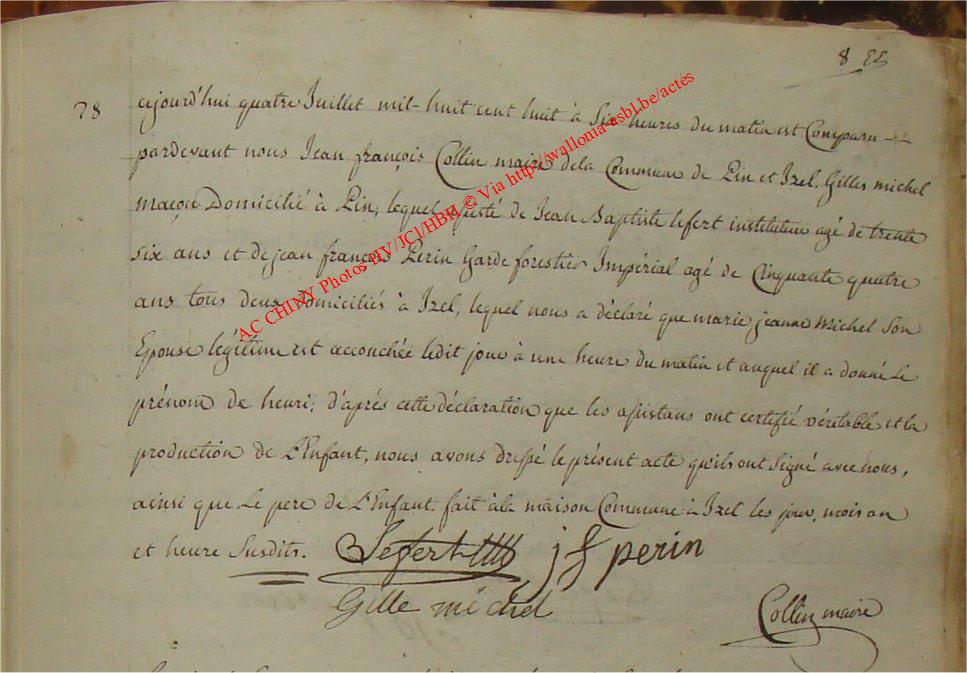 8
28
cejourd'hui quatre Juillet mil-huit cent huit à Six heures du matin est Comparu
pardevant nous Jean françois Collin maire dela Commune de Pin et Izel, Gilles michel
maçon Domicilié à Pin, lequel assisté de Jean Baptiste lefert instituteur agé de trente
six ans et de jean françois Perin Garde forestier Impérial agé de Cinquante quatre
ans tous deux domiciliés à Izel, lequel nous a déclaré que marie jeanne Michel Son
Epouse légitime est accouchée ledit jour à une heure du matin et auquel il a donné Le
prénom de henri; d'après cette déclaration que les assistans ont certifié véritable et la
production de L'Enfant, nous avons dressé le présent acte qu'ils ont Signé avec nous,
ainsi que Le pere de L'Enfant. fait à la maison Commune à Izel les jour, mois an
et heure Susdits.
Lefert
j f perin
Gille michel
Collin maire
AC CHINY Photos HV/JCJ/HBH © Via http://wallonia-asbl.be/actes